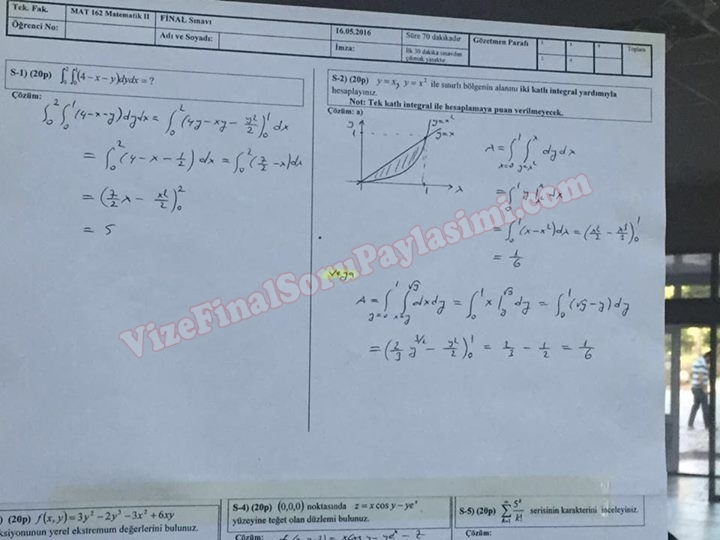 Tek. Fak.
MAT 162 Matematik II
FİNAL Sınavı
16.05.2016
Süre 70 dakikadır
Gözetmen Parafı
1
Toplam
Öğrenci No:
Adı ve Soyadı:
İmza:
İlk 30 dakika sınavdan
çıkmak yasaktır.
S-1) (20p) ∫₀²∫₀¹(4-x-y)dydx = ?
Çözüm:
∫₀²∫₀¹(4-x-y)dydx = ∫₀²(4y-xy-y²/2)₀¹ dx
= ∫₀²(4-x-1/2)dx = ∫₀²(7/2-x)dx
= (7/2 x - x²/2)₀²
= 5
S-2) (20p) y=x, y=x² ile sınırlı bölgenin alanını iki katlı integral yardımıyla
hesaplayınız.
Not: Tek katlı integral ile hesaplamaya puan verilmeyecek.
Çözüm: a)
y
1
y=x²
y=x
1
x
A = ∫_{x=0}^{1} ∫_{y=x²}^{x} dydx
= ∫₀¹ y|_{x²}^{x} dx
= ∫₀¹(x-x²)dx = (x²/2 - x³/3)₀¹
= 1/6
veya
A = ∫_{y=0}^{1} ∫_{x=y}^{√y} dxdy = ∫₀¹ x|_{y}^{√y} dy = ∫₀¹(√y-y)dy
= (2/3 y^{3/2} - y²/2)₀¹ = 2/3 - 1/2 = 1/6
VizeFinalSoruPaylasimi.com
) (20p) f(x,y)=3y²-2y³-3x²+6xy
ksiyonunun yerel ekstremum değerlerini bulunuz.
S-4) (20p) (0,0,0) noktasında z=xcosy-yeˣ
yüzeyine teğet olan düzlemi bulunuz.
Çözüm:
S-5) (20p) ∑_{k=1}^{∞} 5ᵏ/k! serisinin karakterini inceleyiniz.
Çözüm: